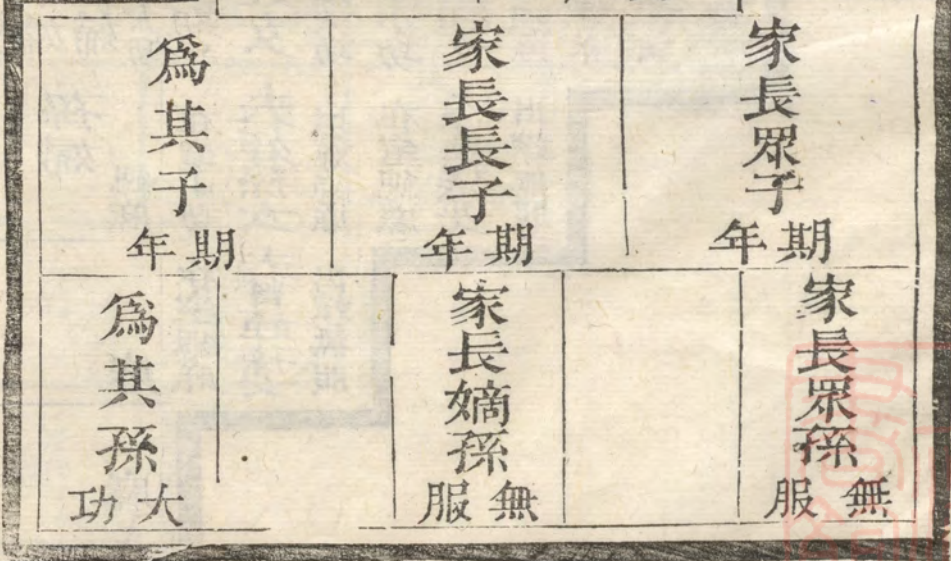 家長眾子
期年
家長長子
期年
爲其子
期年
家長眾孫
無服
家長嫡孫
無服
爲其孫
大功